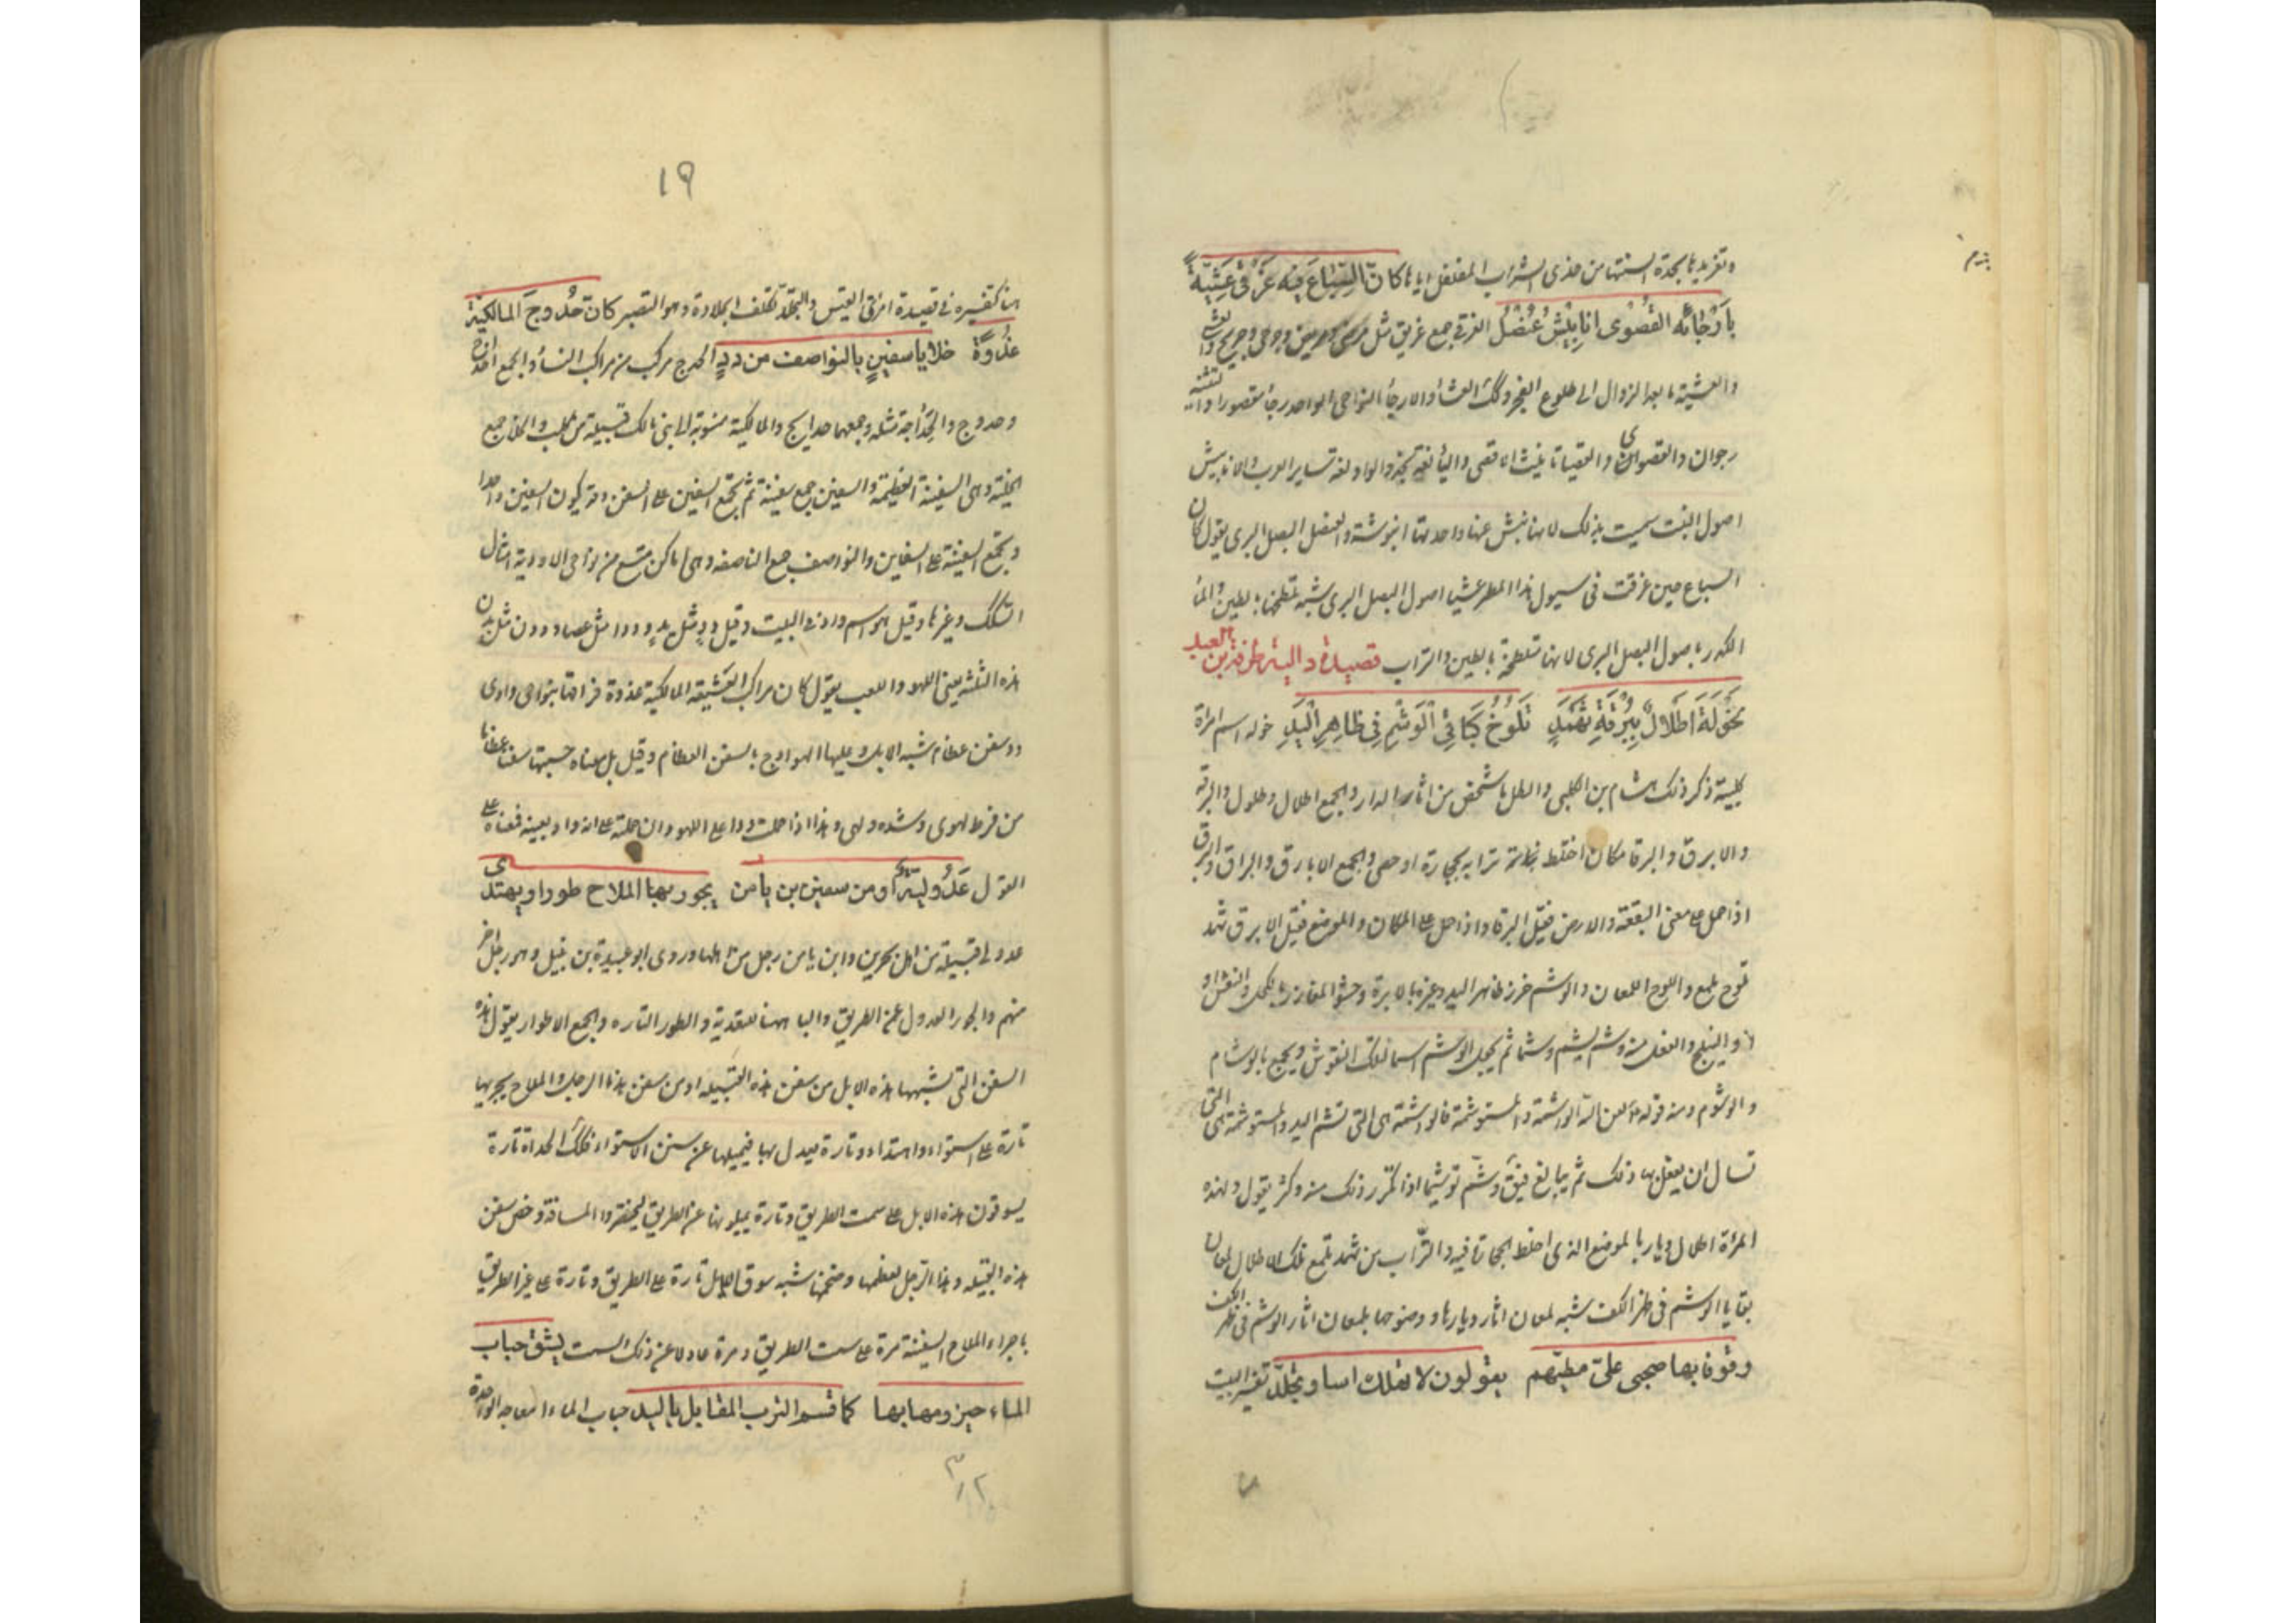 وتغريدها بحدة السنتها من حذى الشراب المفلفل اياها كانّ السِّبَاعَ فيه غَرْقَى عَشِيَّةً
بأرْجَائه القُصْوَى انابِيْشُ عُنْصُلُ الغرقى جمع غريق مثل مرضى ومريض وجرحى وجريح والعشى
والعشية ما بعد الزوال الى طلوع الفجر وكذلك العشاء والارجاء النواحى الواحد رجا مقصورا والتثنية
رجوان والقصوى والقصيا تانيث الاقصى والياء لغة نجد والواو لغة ساير العرب والانابيش
اصول النبت سميت بذلك لانها ينبش عنها واحدتها انبوشة والعنصل البصل البرى يقول كان
السباع حين غرقت فى سيول هذا المطر عشيا اصول البصل البرى شبه تلطخها بالطين والماء
الكدر باصول البصل البرى لانها متلطخة بالطين والتراب قصيدة داليه طرفة بن العبد
لخَوْلَةَ اطْلَالٌ بِبُرْقَةِ ثَهْمَدِ تَلُوْحُ كَبَاقِي الْوَشْمِ فِي ظاهِرِ الْيَدِ خوله اسم امراة
كلبية ذكر ذلك هشام بن الكلبى والطلل ما شخص من اثار الدار والجمع اطلال وطلول والبرقة
والابرق والبرقا مكان اختلط ترابه بحجارة او حصى والجمع الابارق والبراق والبرق
اذا حمل على معنى البقعة والارض قيل البرقا واذا حمل على المكان والموضع قيل الابرق ثهمد
تلوح تلمع واللوح اللمعان والوشم غرز ظاهر اليد وغيره بالابرة وحشو المغارز بالكحل والنقش او
والنيلج والفعل منه وشم يشم وشما ثم يجعل الوشم اسما لتلك النقوش ويجمع بالوشام
والوشوم ومنه قوله لعن الله الواشمة والمستوشمة فالواشمة هى التى تشم اليد والمستوشمة هى التى
تسال ان يفعل بها ذلك ثم يبالغ فيقال وشّم توشيما اذا تكرر ذلك منه وكثر يقول لهذه
المرأة اطلال ديار بالموضع الذى اختلط فيه والتراب من ثهمد تلمع تلك الاطلال لمعان
بقايا الوشم فى ظهر الكف شبه لمعان اثار ديارها ووضوحها بلمعان اثار الوشم فى ظهر الكف
وقوفا بها صحبى علىّ مطيّهم يقولون لا تهلك اسا وتجلّد تفسير البيت
١٩
هنا كتفسيره فى قصيدة امرئ القيس والتجلّد تكلف الجلادة وهو التصبر كانّ حُدُوجَ المالكية
غُدْوَةً خلايا سفينٍ بالنواصف من ددٍ الحدج مركب من مراكب النساء والجمع احداج
وحدوج والحداجة مثله وجمعها حدايج والمالكية منسوبة الى بنى مالك قبيلة من كلب والخلايا جمع
الخلية وهى السفينة العظيمة والسفين جمع سفينة ثم يجمع السفين على السفن وقد يكون السفين واحدا
ويجمع السفينة على السفاين والنواصف جمع الناصفه وهى اماكن متسع من نواحى الاودية امثال
السكك وغيرها وقيل هو اسم واد فى البيت وقيل ددٍ مثل يدٍ وددا مثل عصا وددن مثل بدن
هذه الثلثة بمعنى اللهو واللعب يقول كان مراكب العشيقه المالكية غدوة فراقها بنواحى وادى
دد سفن عظام شبه الابل وعليها الهوادج بالسفن العظام وقيل بل معناه حسبتها سفنا عظاما
من فرط لهوى وشده ولهى وهذا اذا حملت ددا على اللهو وان حملته على انه واد بعينه فمعناه على
القول عَدُولِيَّةٌ او من سفين بن يامن يجور بها الملاح طورا ويهتدى
عدولى قبيلة من اهل بحرين وابن يامن رجل من اهلها وروى ابو عبيدة بن نبتل وهو رجل اخر
منهم والجور العدول عن الطريق والبا هاهنا للتعدية والطور التاره والجمع الاطوار يقول هذه
السفن التى تشبهها هذه الابل من سفن هذه القبيله او من سفن هذا الرجل والملاح يجريها
تارة على استواء واهتداء وتارة يعدل بها فيميلها عن سنن الاستواء فكذلك الحداة تارة
يسوقون هذه الابل على سمت الطريق وتارة يميلونها عن الطريق ليختصروا المسافة وخص سفن
هذه القبيله وهذا الرجل لعظمها وضخمها شبه سوق الابل تارة على الطريق وتارة على غير الطريق
باجراء الملاح السفينة مرة على سمت الطريق ومرة عادلا عن ذلك السمت يشق حباب
الماء حيزومها بها كما قسم الترب المفايل باليد حباب الماء امواجه الواحدة